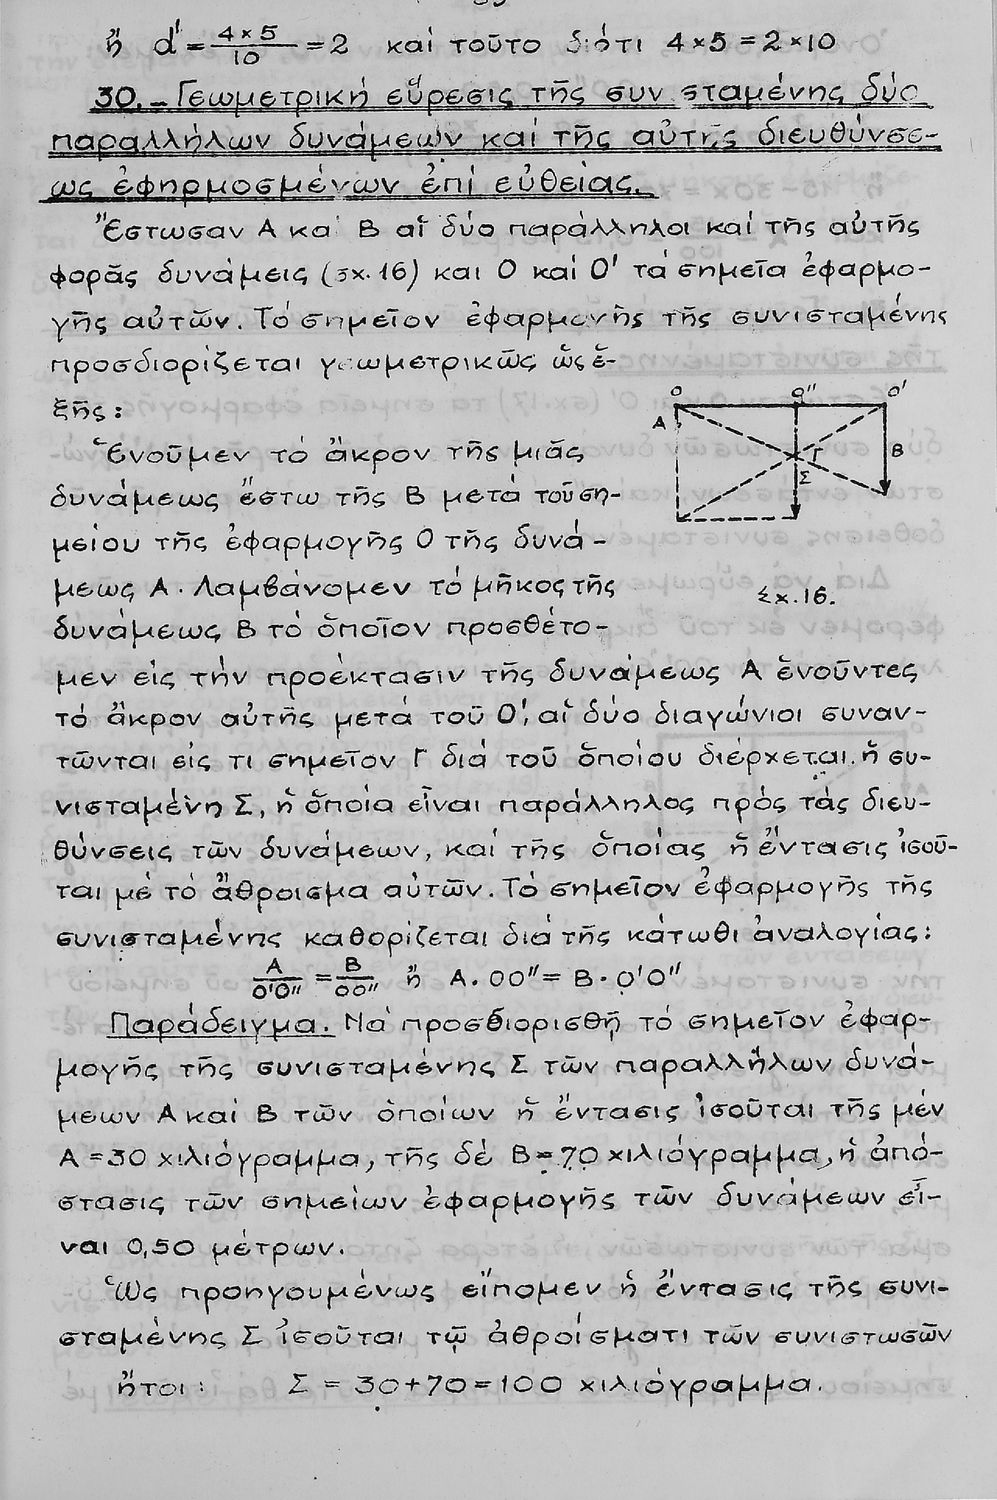 ἤ d' = 4×5/10 = 2 καί τοῦτο διότι 4×5 = 2×10
30.- Γεωμετρική εὕρεσις τῆς συνισταμένης δύο
παραλλήλων δυνάμεων καί τῆς αὐτῆς διευθύνσε-
ως ἐφηρμοσμένων ἐπί εὐθείας.
Ἔστωσαν Α καί Β αἵ δύο παράλληλοι καί τῆς αὐτῆς
φορᾶς δυνάμεις (σχ. 16) και Ο καί Ο' τά σημεῖα ἐφαρμο-
γῆς αὐτῶν. Τό σημεῖον ἐφαρμογῆς τῆς συνισταμένης
προσδιορίζεται γεωμετρικῶς ὡς ἑ-
ξῆς:
Ο Ο'' Ο'
Α Γ Β
Σ
Ἑνοῦμεν τό ἄκρον τῆς μιᾶς
δυνάμεως ἔστω τῆς Β μετά τοῦ ση-
μείου τῆς ἐφαρμογῆς Ο τῆς δυνά-
μεως Α. Λαμβάνομεν τό μῆκος τῆς
Σχ. 16.
δυνάμεως Β τό ὁποῖον προσθέτο-
μεν είς τήν προέκτασιν τῆς δυνάμεως Α ἑνοῦντες
τό ἄκρον αὐτῆς μετά τοῦ Ο', αἵ δύο διαγώνιοι συναν-
τῶνται εἰς τι σημεῖον Γ διά τοῦ ὁποίου διέρχεται ἡ συ-
νισταμένη Σ, ἡ ὁποία εἶναι παράλληλος πρός τάς διευ-
θύνσεις τῶν δυνάμεων, καί τῆς ὁποίας ἡ ἔντασις ἰσοῦ-
ται μέ τό ἄθροισμα αὐτῶν. Τό σημεῖον ἐφαρμογῆς τῆς
συνισταμένης καθορίζεται διά τῆς κάτωθι ἀναλογίας:
Α/Ο'Ο'' = Β/ΟΟ'' ἤ Α.ΟΟ'' = Β.Ο'Ο''
Παράδειγμα. Νά προσδιορισθῇ τό σημεῖον ἐφαρ-
μογῆς τῆς συνισταμένης Σ τῶν παραλλήλων δυνά-
μεων Α καί Β τῶν ὁποίων ἡ ἔντασις ἰσοῦται τῆς μέν
Α = 30 χιλιόγραμμα, τῆς δέ Β = 70 χιλιόγραμμα, ἡ ἀπό-
στασις τῶν σημείων ἐφαρμογῆς τῶν δυνάμεων εἶ-
ναι 0,50 μέτρων.
Ὡς προηγουμένως εἴπομεν ἡ ἔντασις τῆς συνι-
σταμένης Σ ἰσοῦται τῷ ἀθροίσματι τῶν συνιστωσῶν
ἤτοι: Σ = 30+70 = 100 χιλιόγραμμα.